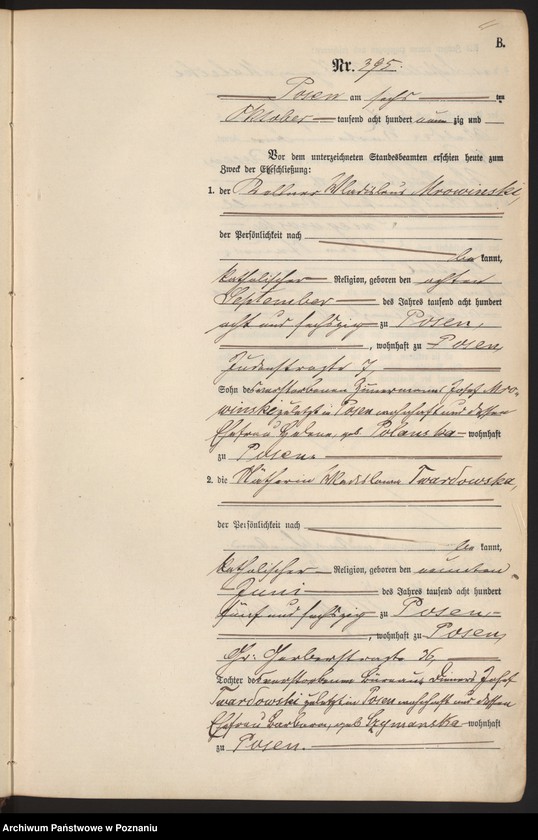 B.
Nr. 395.
Posen am sechsten
Oktober tausend acht hundert neunzig und
Vor dem unterzeichneten Standesbeamten erschien heute zum
Zweck der Eheschließung:
1. der Kellner Wladislaus Mrowinski,
der Persönlichkeit nach
bekannt,
katholischer Religion, geboren den achten
September des Jahres tausend acht hundert
acht und sechszig zu Posen,
, wohnhaft zu Posen,
Judenstraße 7,
Sohn des verstorbenen Zimmermanns Josef Mro-
winski zuletzt in Posen wohnhaft und dessen
Ehefrau Helene, geb. Polanska wohnhaft
zu Posen.
2. die Nätherin Wladislawa Twardowska,
der Persönlichkeit nach
bekannt,
katholischer Religion, geboren den neunten
Juni des Jahres tausend acht hundert
fünf und sechszig zu Posen,
, wohnhaft zu Posen,
Gr: Gerberstraße 36,
Tochter des verstorbenen Büreau Dieners Josef
Twardowski zuletzt in Posen wohnhaft und dessen
Ehefrau Barbara, geb. Szymanska wohnhaft
zu Posen.
Archiwum Państwowe w Poznaniu